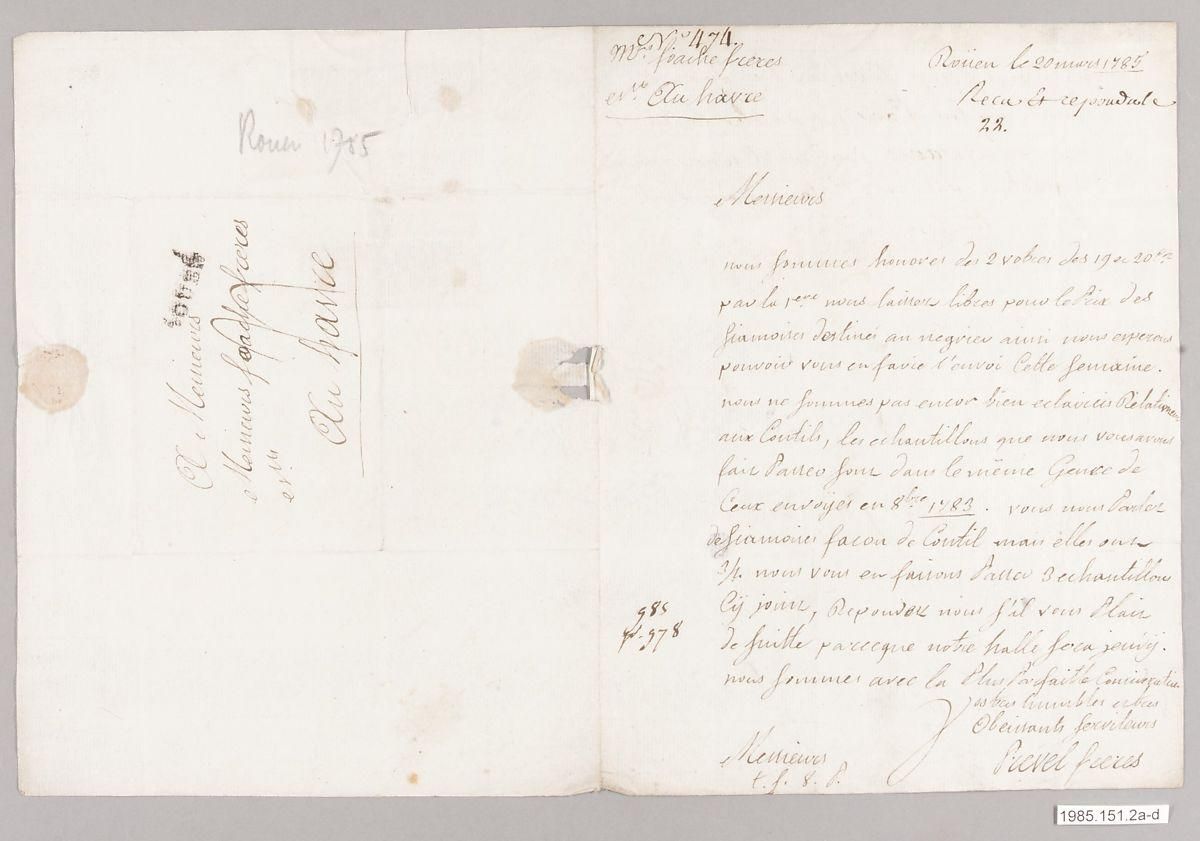 Rouen 1785
ROUEN
A Messieurs
Messieurs foache freres
en vlle
Au havre
N° 474.
Mrs foache freres
Au havre
Roüen le 20 mars 1785
Recu et repondu le
22.
Messieurs
nous sommes honorés des 2 votres des 19 et 20 Ct
par la 1ere nous laissez libres pour le Prix des
siamoises destinés au negrier ainsi nous esperons
pouvoir vous en faire l'envoi Cette semaine.
nous ne sommes pas encor bien eclaircis Relativement
aux Coutils, les echantillons que nous vous avons
fait Passer sont dans le même Genre de
Ceux envoyés en 8bre 1783. vous nous Parlez
de siamoises facon de Coutil mais elles ont
3/4. nous vous en faisons Passer 3 echantillon
Cy joint, Repondez nous s'il vous Plait
de suitte parceque notre halle sera jeudy.
nous sommes avec la Plus Parfaitte Consideration
Vos tres humbles et tres
Obeissants serviteurs
Prevel freres
Messieurs
t. s. 8. P.
985
978
1985.151.2a-d